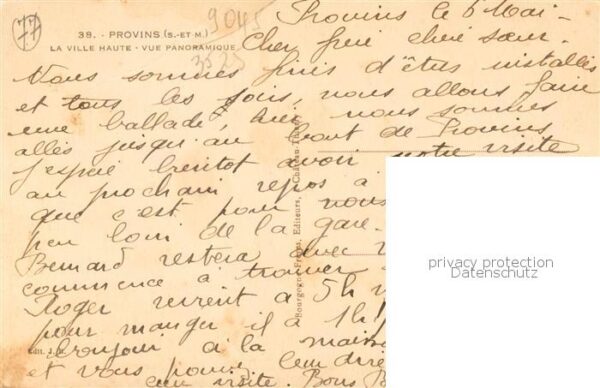 77
9045
3525
38. - PROVINS (S.-ET M.)
LA VILLE HAUTE - VUE PANORAMIQUE
Provins le 6 Mai -
Cher frère chère sœur.
Nous sommes finis d'êtres installés
et tous les jours, nous allons faire
une ballade, hier nous sommes
allés jusqu'au bout de Provins
j'espère bientôt avoir votre visite
au prochain repos à
que c'est pour nous
peu loin de la gare.
Bernard restera avec
commence à trouver
Roger revient à 5h
pour manger il a 1h!
bonjour à la mais
et vous pouvez leur dire
leur visite. Bons B
Bourgogne Frères, Editeurs, Château-Thierry
Edit. J.
privacy protection
Datenschutz